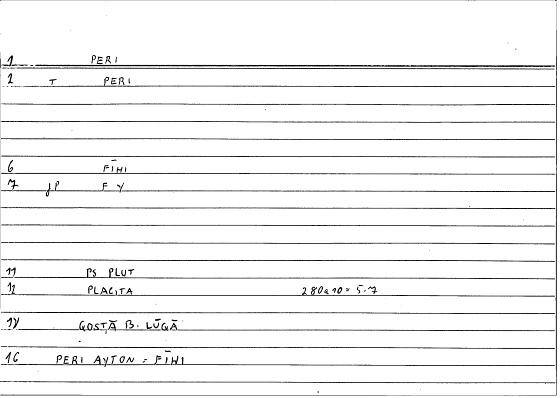 1 PERI
2 T PERI
6 FĪHI
7 JP F Y
11 PS PLUT
12 PLACITA 280a10 = 5.7
14 GOSṬĀ B. LŪGĀ
16 PERI AYTON = FĪHI